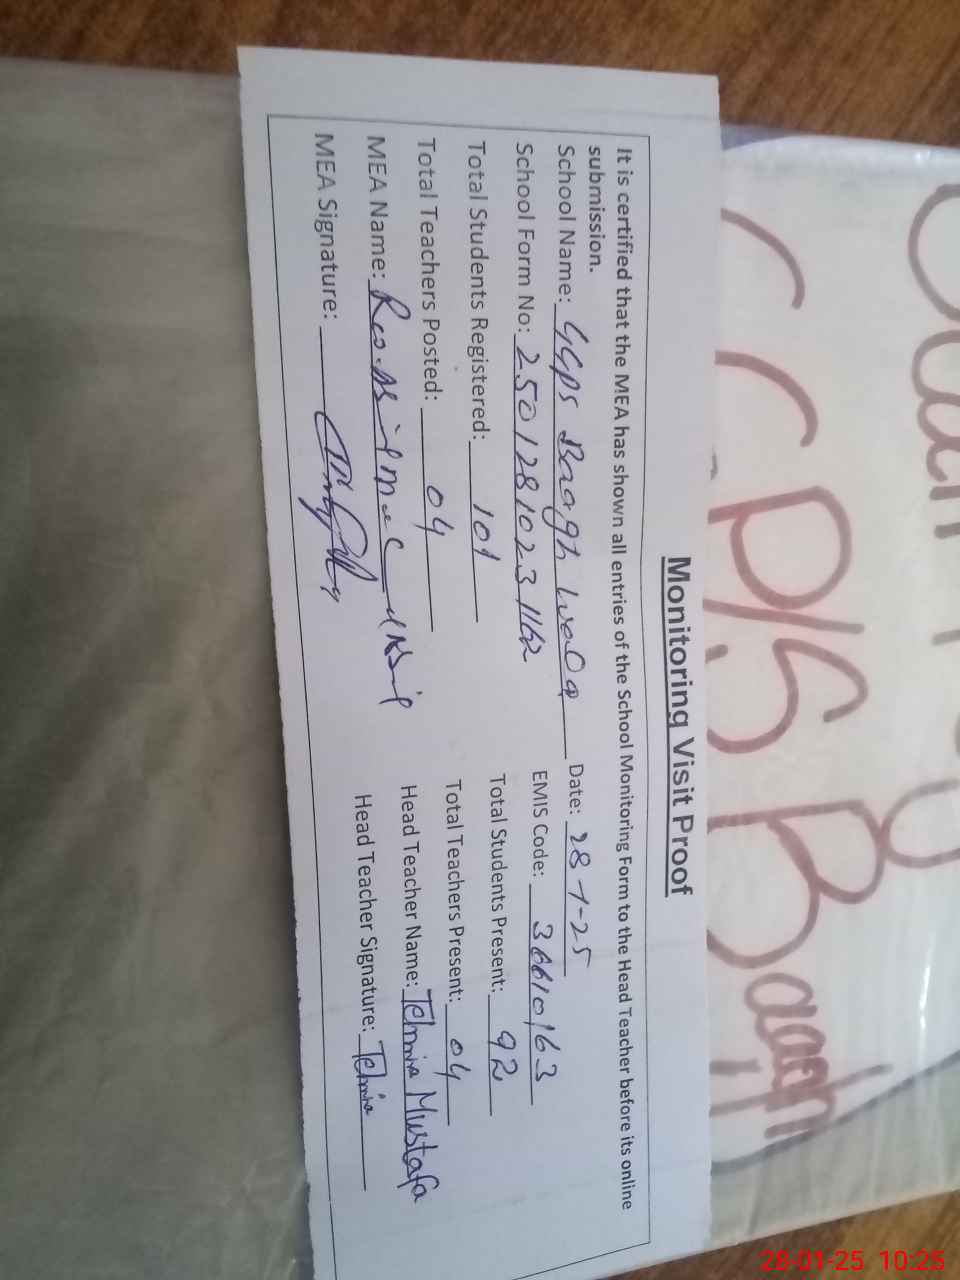 Monitoring Visit Proof
It is certified that the MEA has shown all entries of the School Monitoring Form to the Head Teacher before its online
submission.
School Name: GGPS Baagh wala Date: 28-1-25
School Form No: EMIS Code: 36610163
Total Students Registered: 101 Total Students Present: 92
Total Teachers Posted: 04 Total Teachers Present: 04
MEA Name: Head Teacher Name: Tehmina Mustafa
MEA Signature: Head Teacher Signature: Tehmina
P/S Baagh
28-01-25 10:25